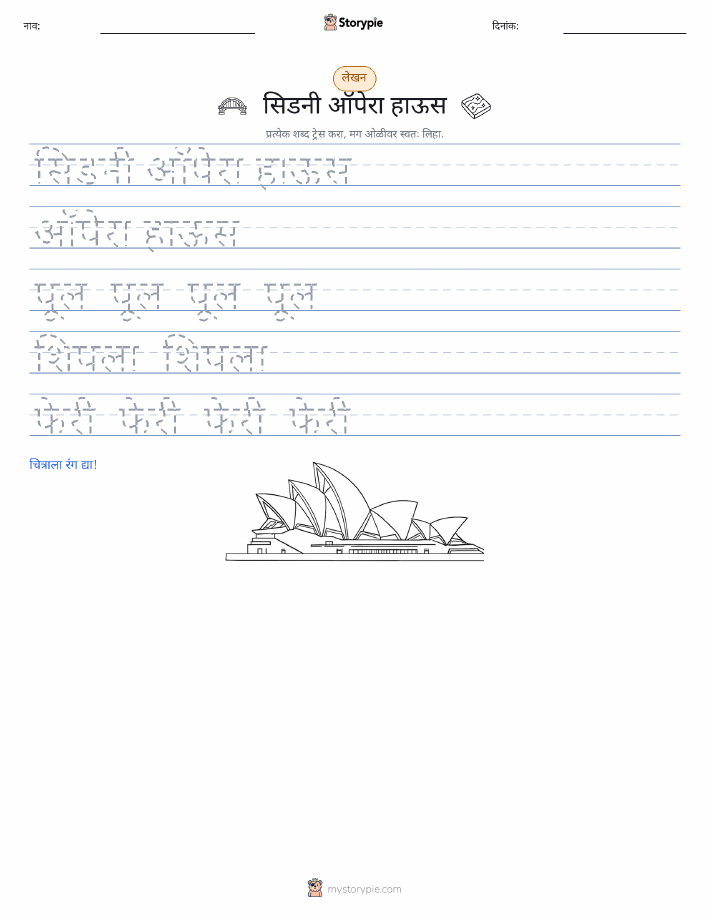 नाव:
Storypie
दिनांक:
लेखन
सिडनी ऑपेरा हाऊस
प्रत्येक शब्द ट्रेस करा, मग ओळीवर स्वतः लिहा.
सिडनी ऑपेरा हाऊस
ऑपेरा हाऊस
पूल पूल पूल पूल
शिंपला शिंपला
फेरी फेरी फेरी फेरी
चित्राला रंग द्या!
mystorypie.com